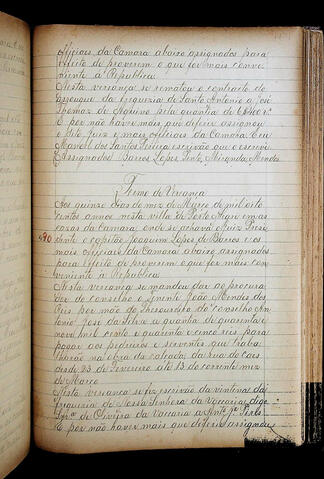 officiais da Camara abaixo assignados para
effeito de proverem o que for mais conve-
niente á Republica.
Nesta veriança se rematou o contracto do
açougue da freguezia de Santo Antonio a José
Thomaz de Aquino pela quantia de
E por não haver mais que deferir assignou
o dito juiz e mais officiaes da Camara. Eu
Manoel dos Santos escrivão que o escrevi
Assignados Barros, Lopes, Pinto, Miranda, Mendes.
Termo de Veriança
Aos quinze dias do mez de Março de mil oito
centos annos nesta villa de Porto Alegre em as
casas da Camara, onde se achava o Juiz Presi-
dente o capitão Joaquim Lopes de Barros e os
mais officiaes da Camara abaixo assignados
para effeito de proverem o que for mais con-
veniente á Republica.
Nesta veriança se mandou dar ao procura-
dor do conselho o Tenente João Mendes dos
Reis por mão do thesoureiro do conselho An-
tonio José da Silva a quantia de quarenta e
nove mil cento e quarenta e cinco reis para
pagar aos pedreiros e serventes que traba-
lharão na obra da calçada da rua do Caes
desde 23 de Fevereiro até 15 do corrente mez
de Março.
Nesta veriança se fez escrivão da vintena da
freguezia de Nossa Senhora da Vaccaria, digo
de Oliveira da Vaccaria a Antº jº Peres
E por não haver mais que deferir assignou